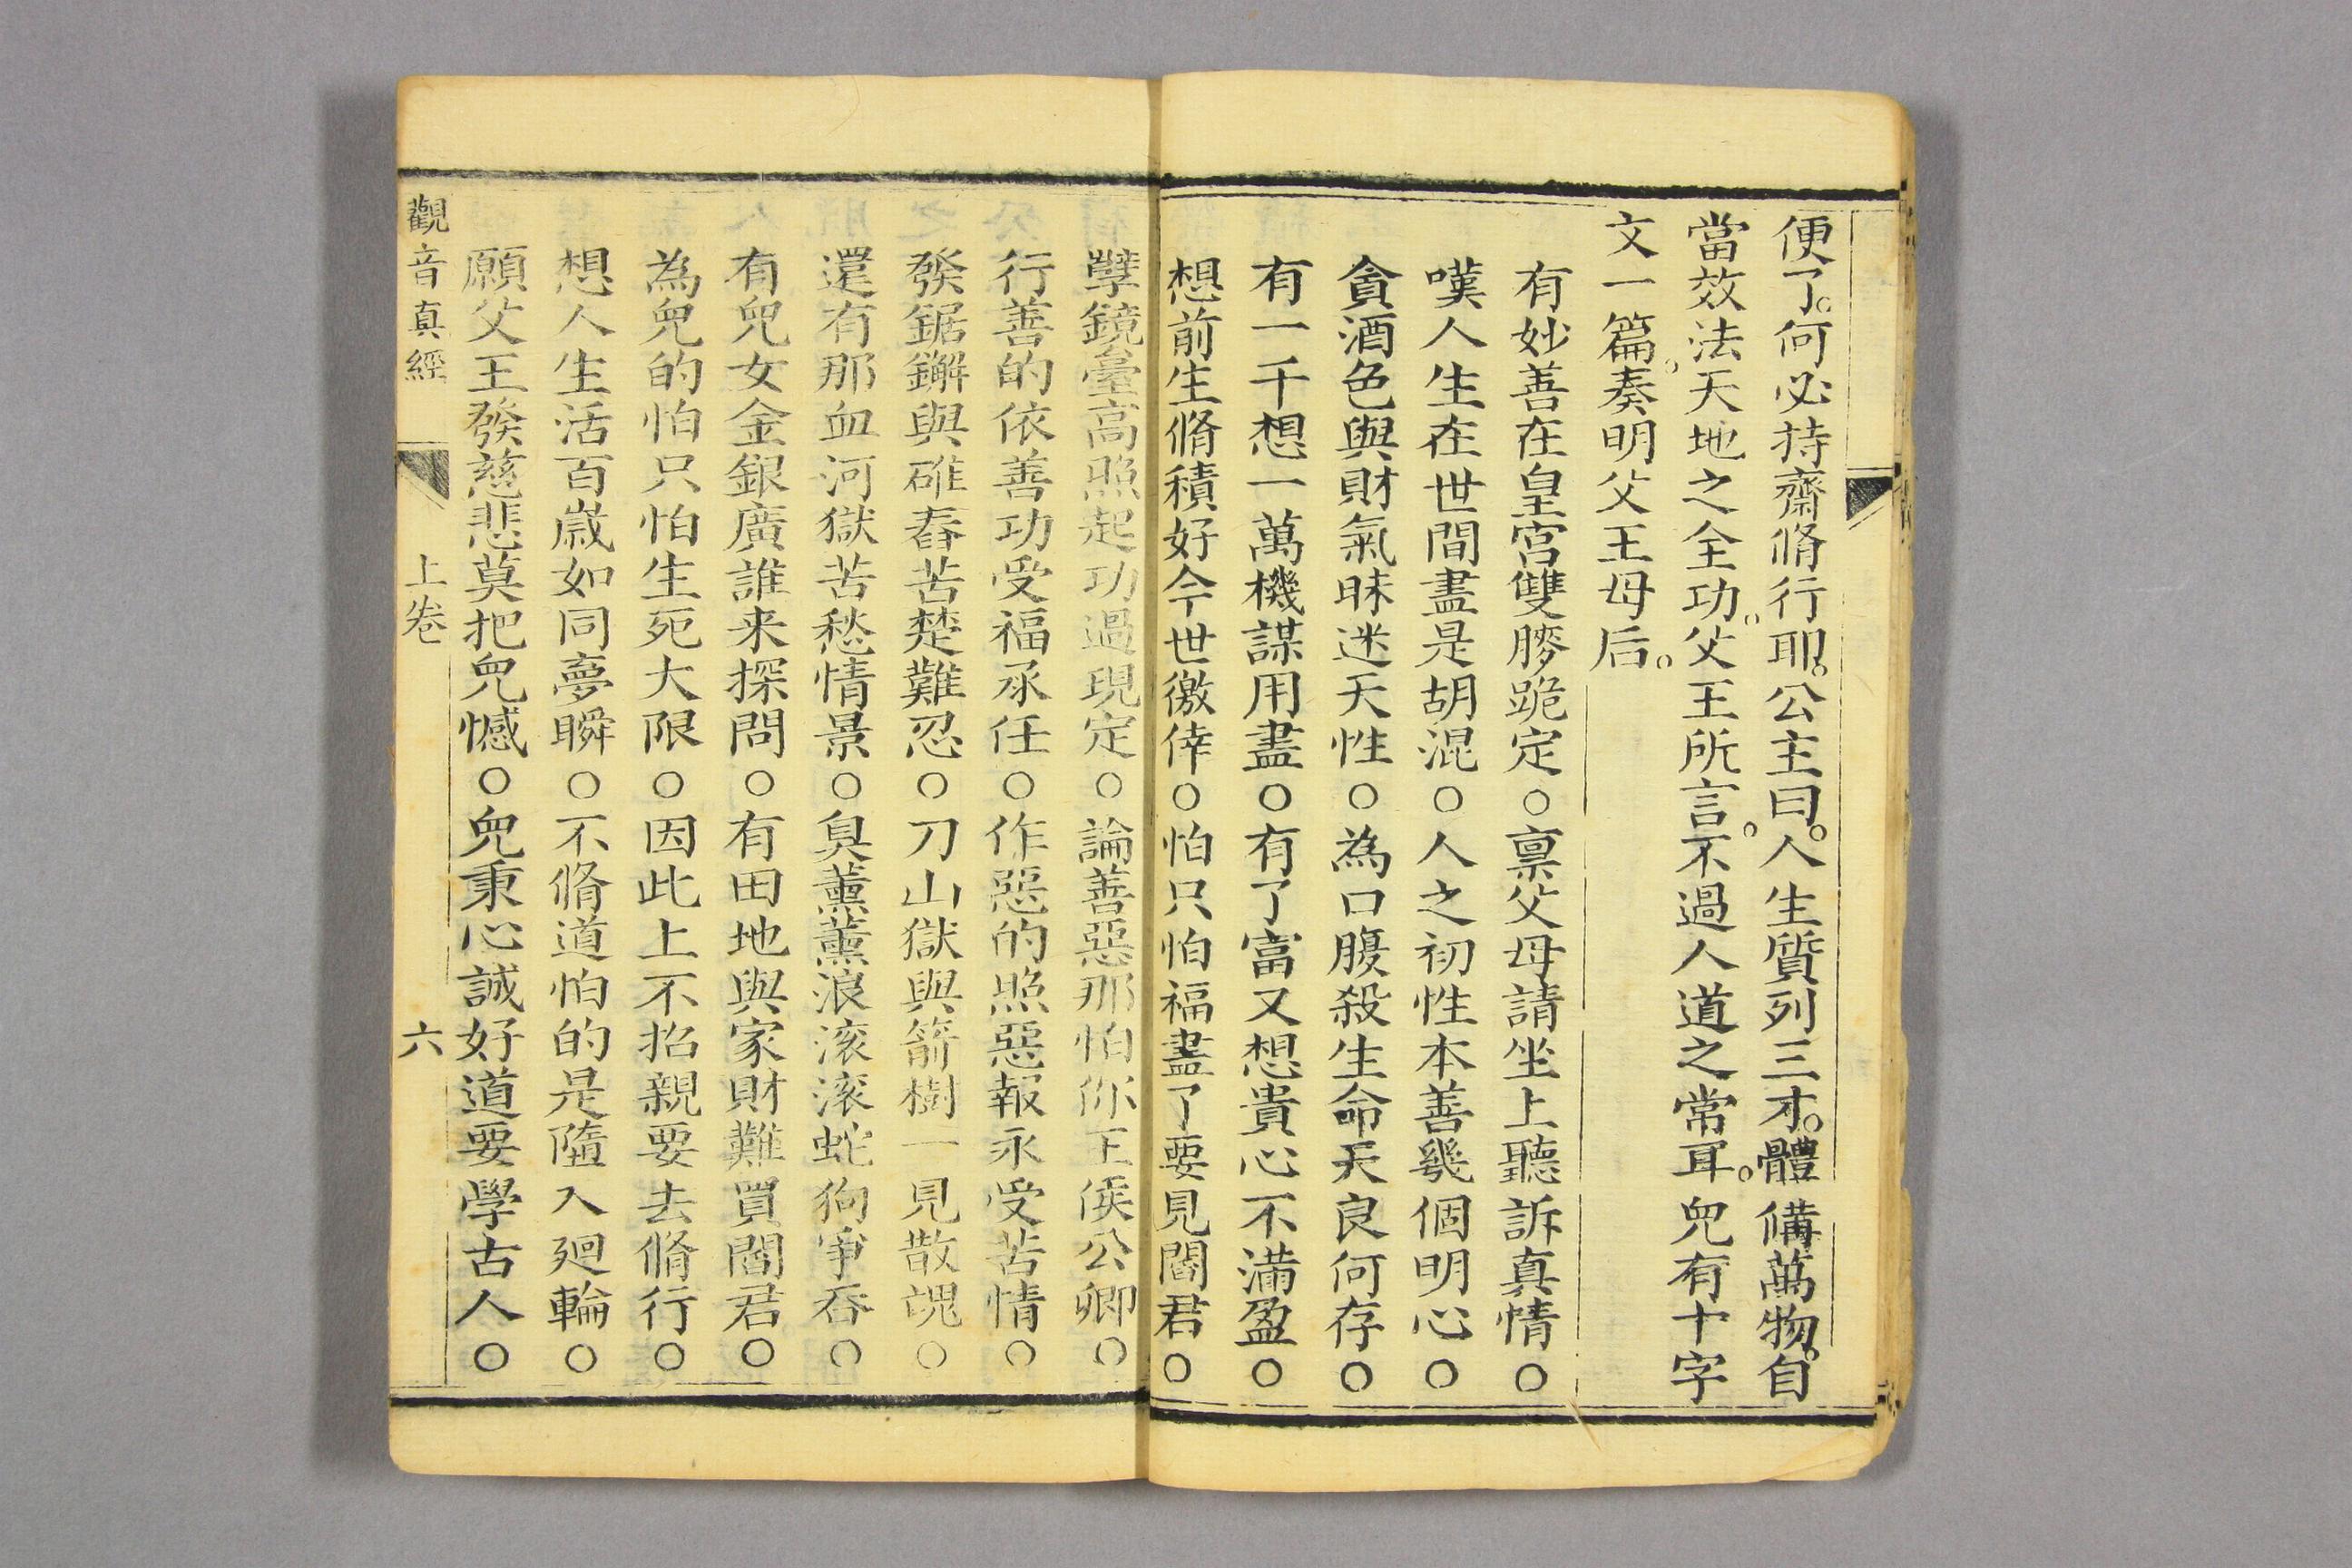 便了。何必持齋脩行耶。公主曰。人生質列三才。體備萬物。自
當效法天地之全功。父王所言。不過人道之常耳。兒有十字
文一篇。奏明父王母后。
有妙善在皇宮雙膝跪定○禀父母請坐上聽訴真情○
嘆人生在世間盡是胡混○人之初性本善幾個明心○
貪酒色與財氣昧迷天性○為口腹殺生命天良何存○
有一千想一萬機謀用盡○有了富又想貴心不滿盈○
想前生脩積好今世徼倖○怕只怕福盡了要見閻君○
孽鏡臺高照起功過現定○論善惡那怕你王侯公卿○
行善的依善功受福承任○作惡的照惡報永受苦情○
發鋸鑼與碓舂苦楚難忍○刀山獄與箭樹一見散魂○
還有那血河獄苦愁情景○臭薰薰浪滾滾蛇狗爭吞○
有兒女金銀廣誰来探問○有田地與家財難買閻君○
為兒的怕只怕生死大限○因此上不招親要去脩行○
想人生活百歲如同夢瞬○不脩道怕的是墮入廻輪○
願父王發慈悲莫把兒憾○兒秉心誠好道要學古人○
觀音真經 上卷 六